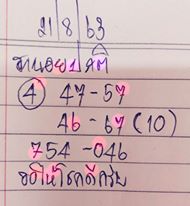 21|8|63
ฮานอยปกติ
④ 47-57
46-67(10)
754-046
ขอให้โชคดีครับ